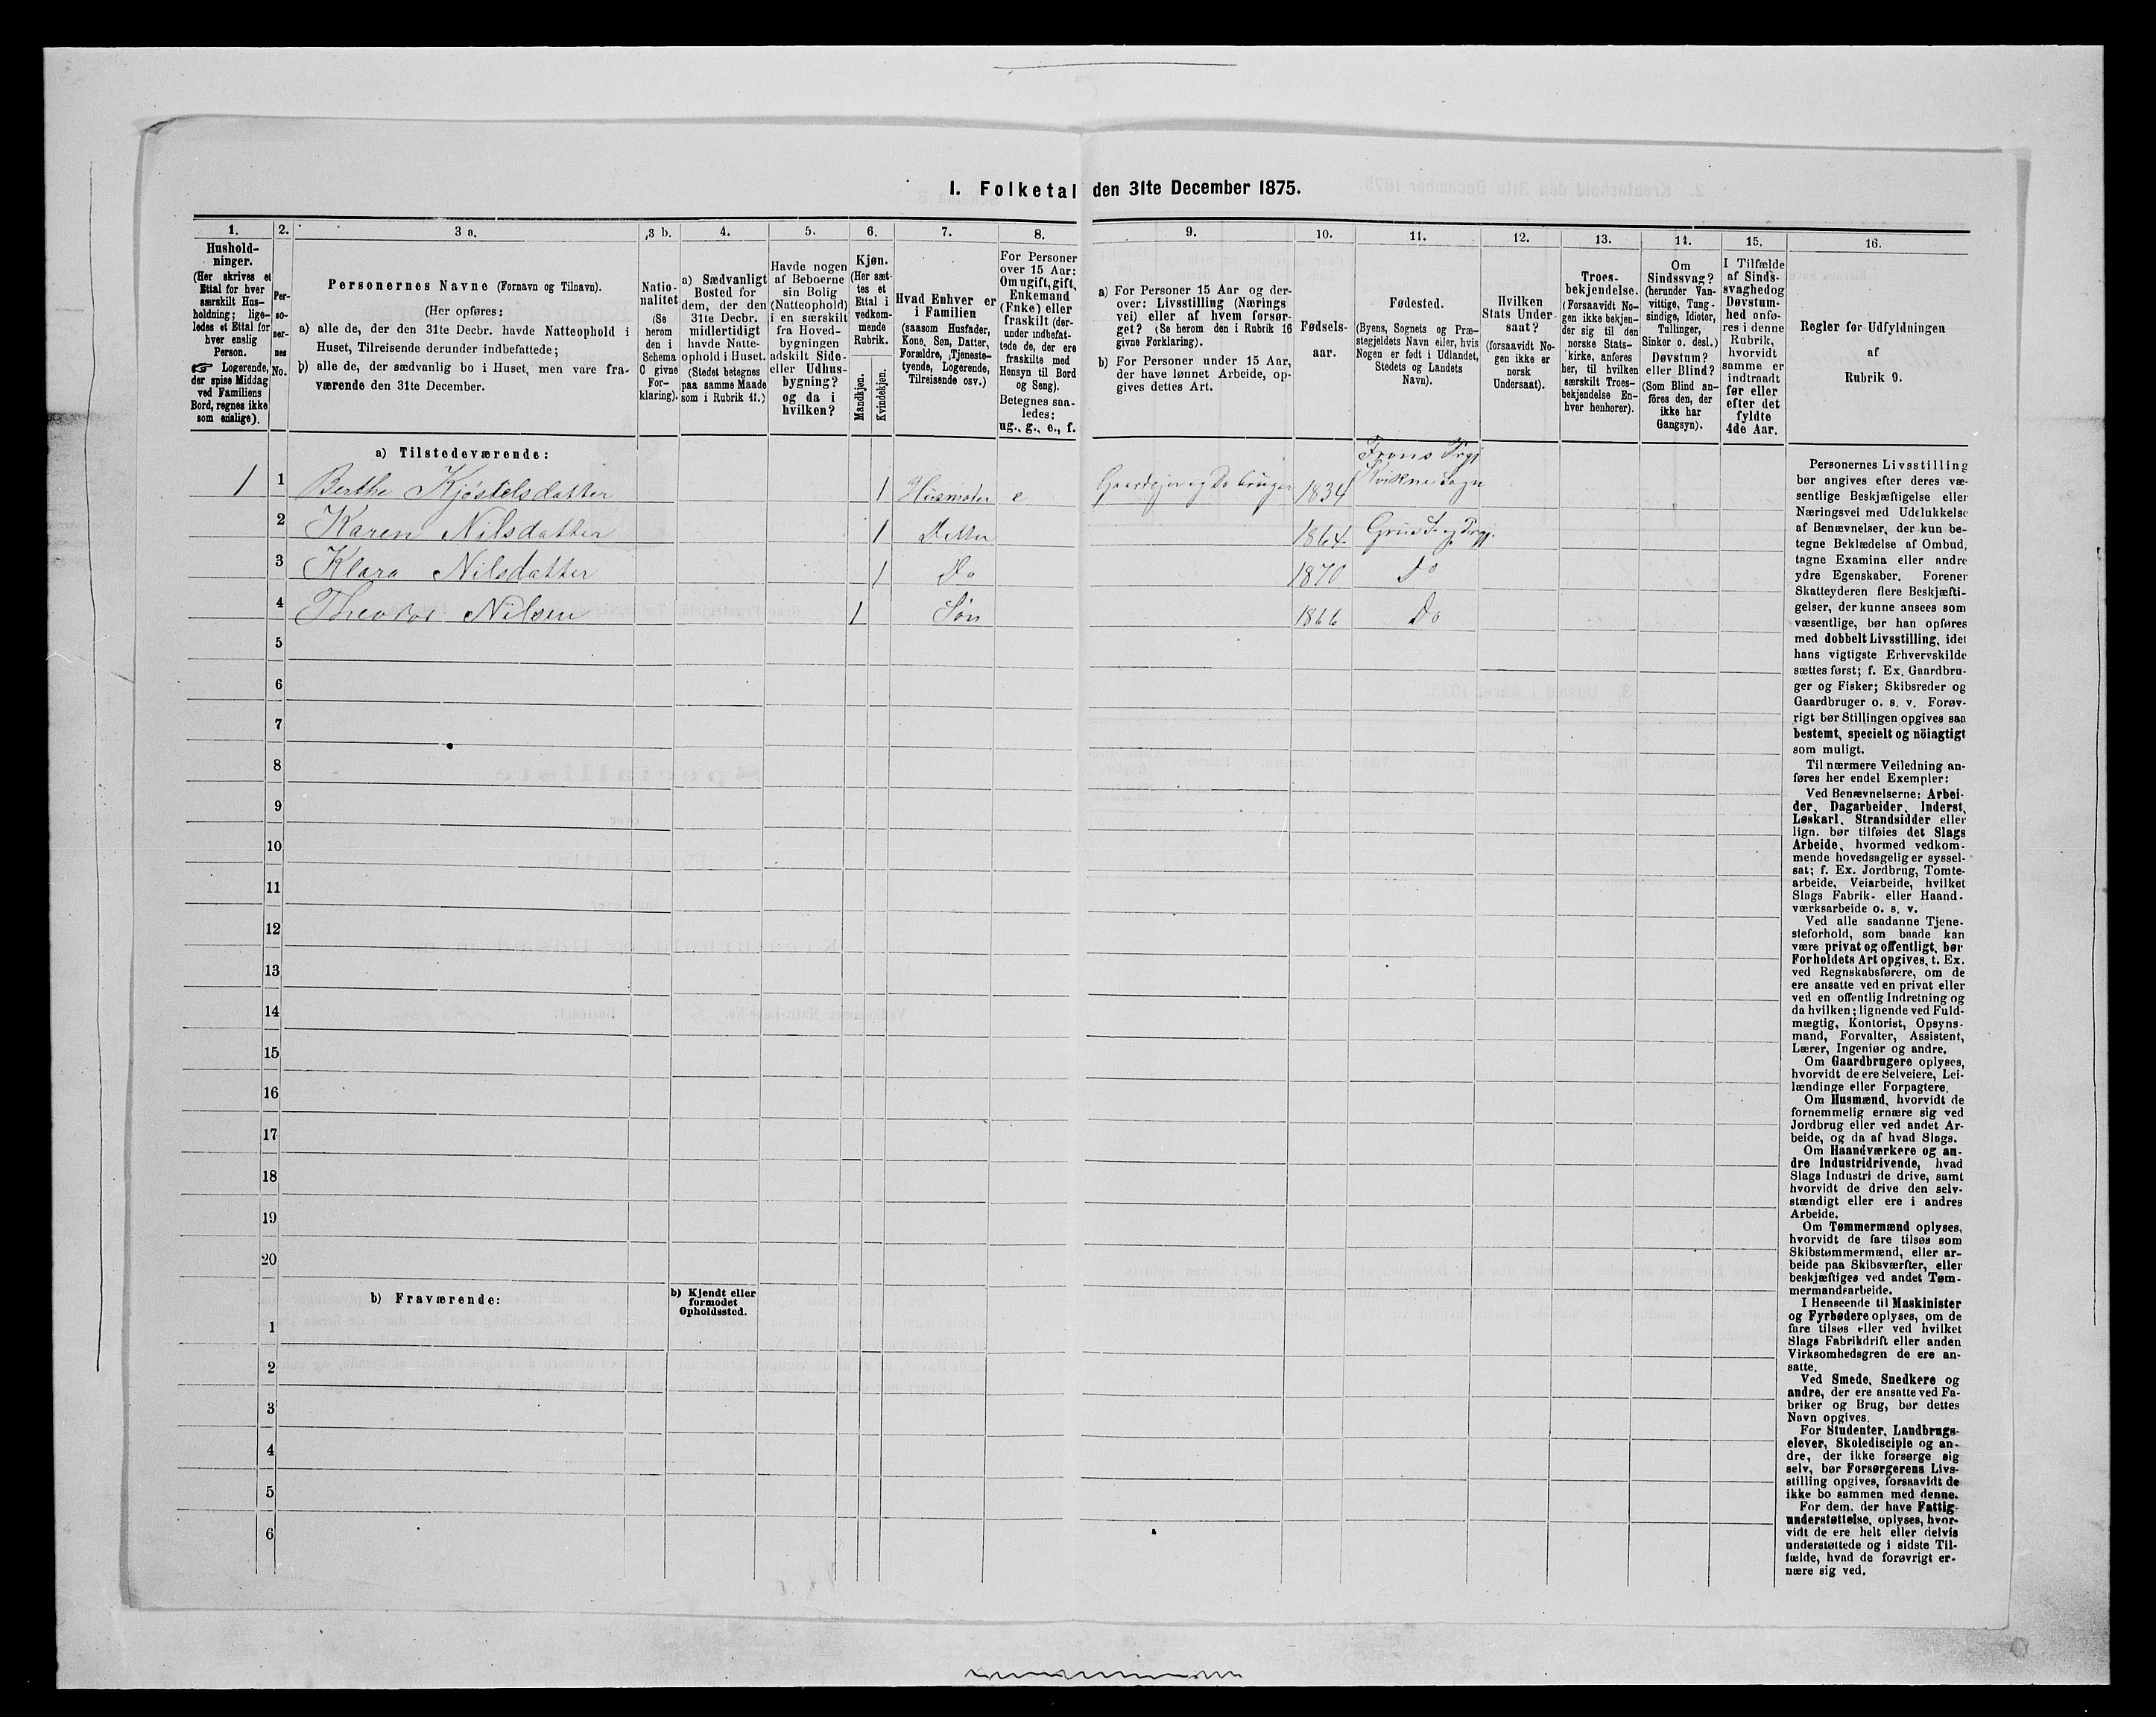 I. Folketal den 31te December 1875.
1.
Hushold-
ninger.
(Her skrives et
Ettal for hver
særskilt Hus-
holdning; lige-
ledes et Ettal for
hver enslig
Person.
☞ Logerende,
der spise Middag
ved Familiens
Bord, regnes ikke
som enslige).
2.
Per-
so-
ner-
nes
No.
3 a.
Personernes Navne (Fornavn og Tilnavn).
(Her opføres:
a) alle de, der den 31te Decbr. havde Natteophold i
Huset, Tilreisende derunder indbefattede;
b) alle de, der sædvanlig bo i Huset, men vare fra-
værende den 31te December.
3 b.
Natio-
nalitet
(Se
herom
den i
Schema
C givne
For-
klaring).
4.
a) Sædvanligt
Bosted for
dem, der den
31te Decbr.
midlertidigt
havde Natte-
ophold i Huset.
(Stedet betegnes
paa samme Maade
som i Rubrik 11.)
5.
Havde nogen
af Beboerne
sin Bolig
(Natteophold)
i en særskilt
fra Hoved-
bygningen
adskilt Side-
eller Udhus-
bygning?
og da i
hvilken?
6.
Kjøn.
(Her sæt-
tes et
Ettal i
vedkom-
mende
Rubrik.
Mandkjøn.
Kvindekjøn.
7.
Hvad Enhver er
i Familien
(saasom Husfader,
Kone, Søn, Datter,
Forældre, Tjeneste-
tyende, Logerende,
Tilreisende osv.)
8.
For Personer
over 15 Aar:
Om ugift, gift,
Enkemand
(Enke) eller
fraskilt (der-
under indbefat-
tede de, der ere
fraskilte med
Hensyn til Bord
og Seng).
Betegnes saa-
ledes:
ug., g., e., f.
9.
a) For Personer 15 Aar og der-
over: Livsstilling (Nærings
vei) eller af hvem forsør-
get? (Se herom den i Rubrik 16
givne Forklaring).
b) For Personer under 15 Aar,
der have lønnet Arbeide, op-
gives dettes Art.
10.
Fødsels-
aar.
11.
Fødested.
(Byens, Sognets og Præ-
stegjeldets Navn eller, hvis
Nogen er født i Udlandet,
Stedets og Landets
Navn).
12.
Hvilken
Stats Under
saat?
(forsaavidt No-
gen ikke er
norsk
Undersaat).
13.
Troes-
bekjendelse.
(Forsaavidt No-
gen ikke bekjen-
der sig til den
norske Stats-
kirke, anføres
her, til hvilken
særskilt Troes-
bekjendelse En-
hver henhører).
14.
Om
Sindssvag?
(herunder Van-
vittige, Tung-
sindige, Idioter,
Tullinger,
Sinker o. desl.)
Døvstum?
eller Blind?
(Som Blind an-
føres den, der
ikke har
Gangsyn).
15.
I Tilfælde
af Sinds-
svaghed og
Døvstum-
hed anfø-
res i denne
Rubrik,
hvorvidt
samme er
indtraadt
før eller
efter det
fyldte
4de Aar.
16.
Regler for Udfyldningen
af
Rubrik 9.
a) Tilstedeværende:
Frons Prgj
1 1 Berthe Kjøstelsdatter 1 Husmoder e Gaardejer og Do bruger 1834 Kvikne Sogn
2 Karen Nilsdatter 1 Datter 1864 Grue S. og Prgj.
3 Klara Nilsdatter 1 Do 1870 Do
4 Theodor Nilsen 1 Søn 1866 Do
5
6
7
8
9
10
11
12
13
14
15
16
17
18
19
20
b) Fraværende:
b) Kjendt eller
formodet
Opholdssted.
1
2
3
4
5
6
Personernes Livsstilling
bør angives efter deres væ-
sentlige Beskjæftigelse eller
Næringsvei med Udelukkelse
af Benævnelser, der kun be-
tegne Beklædelse af Ombud,
tagne Examina eller andre
ydre Egenskaber. Forener
Skatteyderen flere Beskjæfti-
gelser, der kunne ansees som
væsentlige, bør han opføres
med dobbelt Livsstilling, idet
hans vigtigste Erhvervskilde
sættes først; f. Ex. Gaardbru-
ger og Fisker; Skibsreder og
Gaardbruger o. s. v. Forøv-
rigt bør Stillingen opgives saa
bestemt, specielt og nöiagtigt
som muligt.
Til nærmere Veiledning an-
føres her endel Exempler:
Ved Benævnelserne: Arbei-
der, Dagarbeider, Inderst,
Løskarl, Strandsidder eller
lign. bør tilføies det Slags
Arbeide, hvormed vedkom-
mende hovedsagelig er syssel-
sat; f. Ex. Jordbrug, Tomte-
arbeide, Veiarbeide, hvilket
Slags Fabrik- eller Haand-
værksarbeide o. s. v.
Ved alle saadanne Tjene-
steforhold, som baade kan
være privat og offentligt, bør
Forholdets Art opgives, t. Ex.
ved Regnskabsførere, om de
ere ansatte ved en privat eller
ved en offentlig Indretning og
da hvilken; lignende ved Fuld-
mægtig, Kontorist, Opsyns-
mand, Forvalter, Assistent,
Lærer, Ingeniør og andre.
Om Gaardbrugere oplyses,
hvorvidt de ere Selveiere, Lei-
lændinge eller Forpagtere.
Om Husmænd, hvorvidt de
fornemmelig ernære sig ved
Jordbrug eller ved andet Ar-
beide, og da af hvad Slags.
Om Haandværkere og an-
dre Industridrivende, hvad
Slags Industri de drive, samt
hvorvidt de drive den selv-
stændigt eller ere i andres
Arbeide.
Om Tømmermænd oplyses,
hvorvidt de fare tilsøs som
Skibstømmermænd, eller ar-
beide paa Skibsværfter, eller
beskjæftiges ved andet Tøm-
mermandsarbeide.
I Henseende til Maskinister
og Fyrbødere oplyses, om de
fare tilsøs eller ved hvilket
Slags Fabrikdrift eller anden
Virksomhedsgren de ere an-
satte.
Ved Smede, Snedkere og
andre, der ere ansatte ved Fa-
briker og Brug, bør dettes
Navn opgives.
For Studenter, Landbrugs-
elever, Skoledisciple og an-
dre, der ikke forsørge sig
selv, bør Forsørgerens Livs-
stilling opgives, forsaavidt de
ikke bo sammen med denne.
For dem, der have Fattig-
understøttelse, oplyses, hvor-
vidt de ere helt eller delvis
understøttede og i sidste Til-
fælde, hvad de forøvrigt er-
nære sig ved.